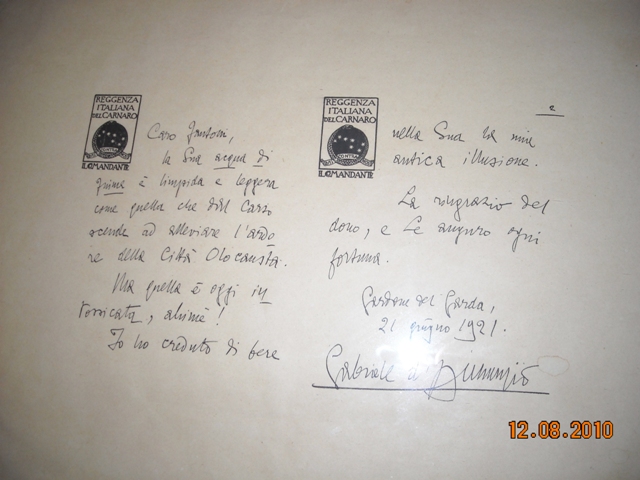 REGGENZA
ITALIANA
DEL CARNARO
IL COMANDANTE
Caro
la Sua acqua di
è limpida e leggera
come quella che dal Carso
scende ad alleviare l'ardo
re della Città Olocausta.
Ma quella è oggi in
tossicata, ahimè!
Io ho creduto di bere
REGGENZA
ITALIANA
DEL CARNARO
IL COMANDANTE
2
nella Sua la mia
antica illusione.
La ringrazio del
dono, e Le auguro ogni
fortuna.
Gardone del Garda,
21 giugno 1921.
Gabriele d'Annunzio
12.08.2010